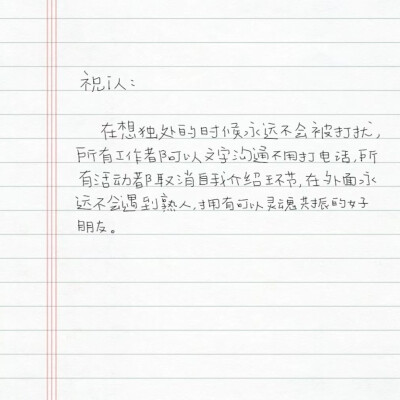 祝i人：
在想独处的时候永远不会被打扰，
所有工作者都可以文字沟通不用打电话，所
有活动都取消自我介绍环节，在外面永
远不会遇到熟人，拥有可以灵魂共振的好
朋友。